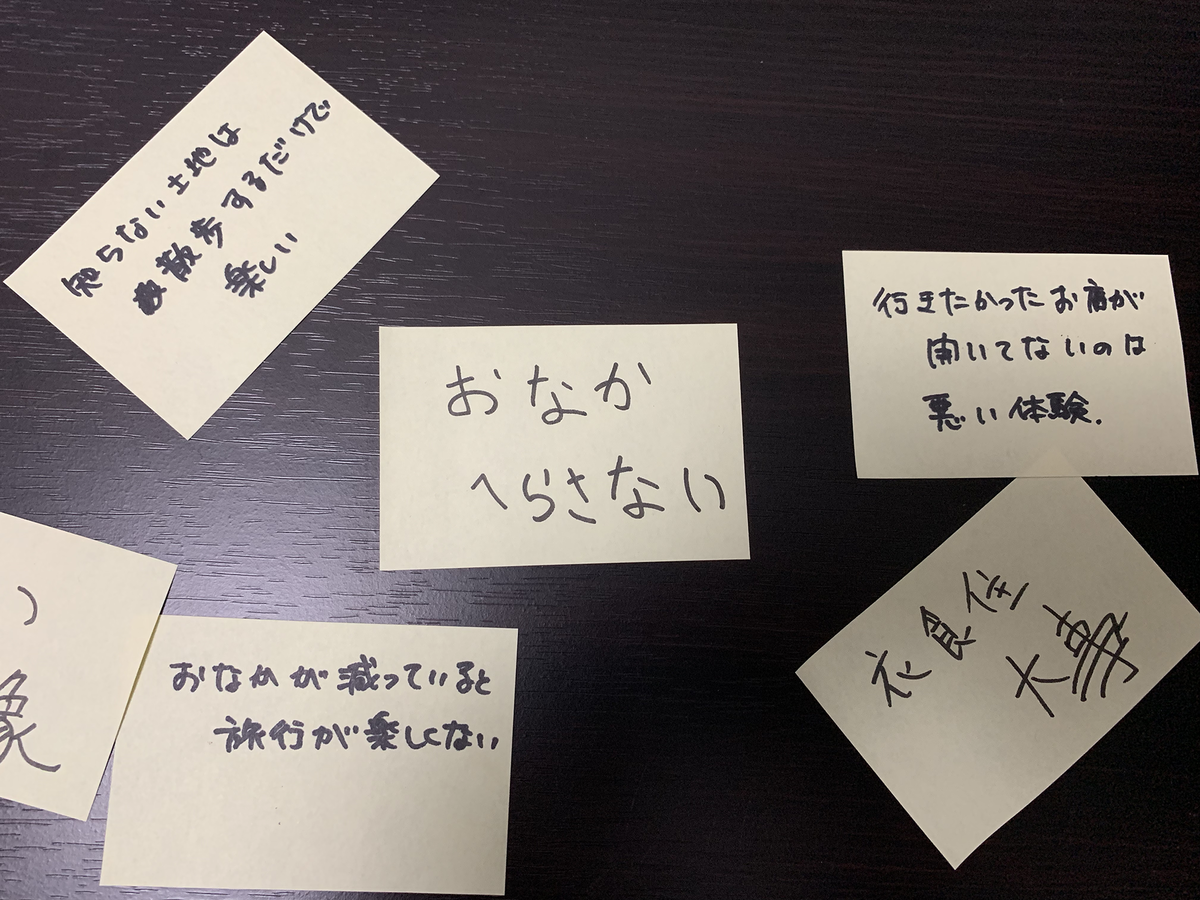 知らない土地は
散歩するだけで
楽しい
おなか
へらさない
行きたかったお店が
開いてないのは
悪い体験.
衣食住
大事
おなかが減っていると
旅行が楽しくない
象